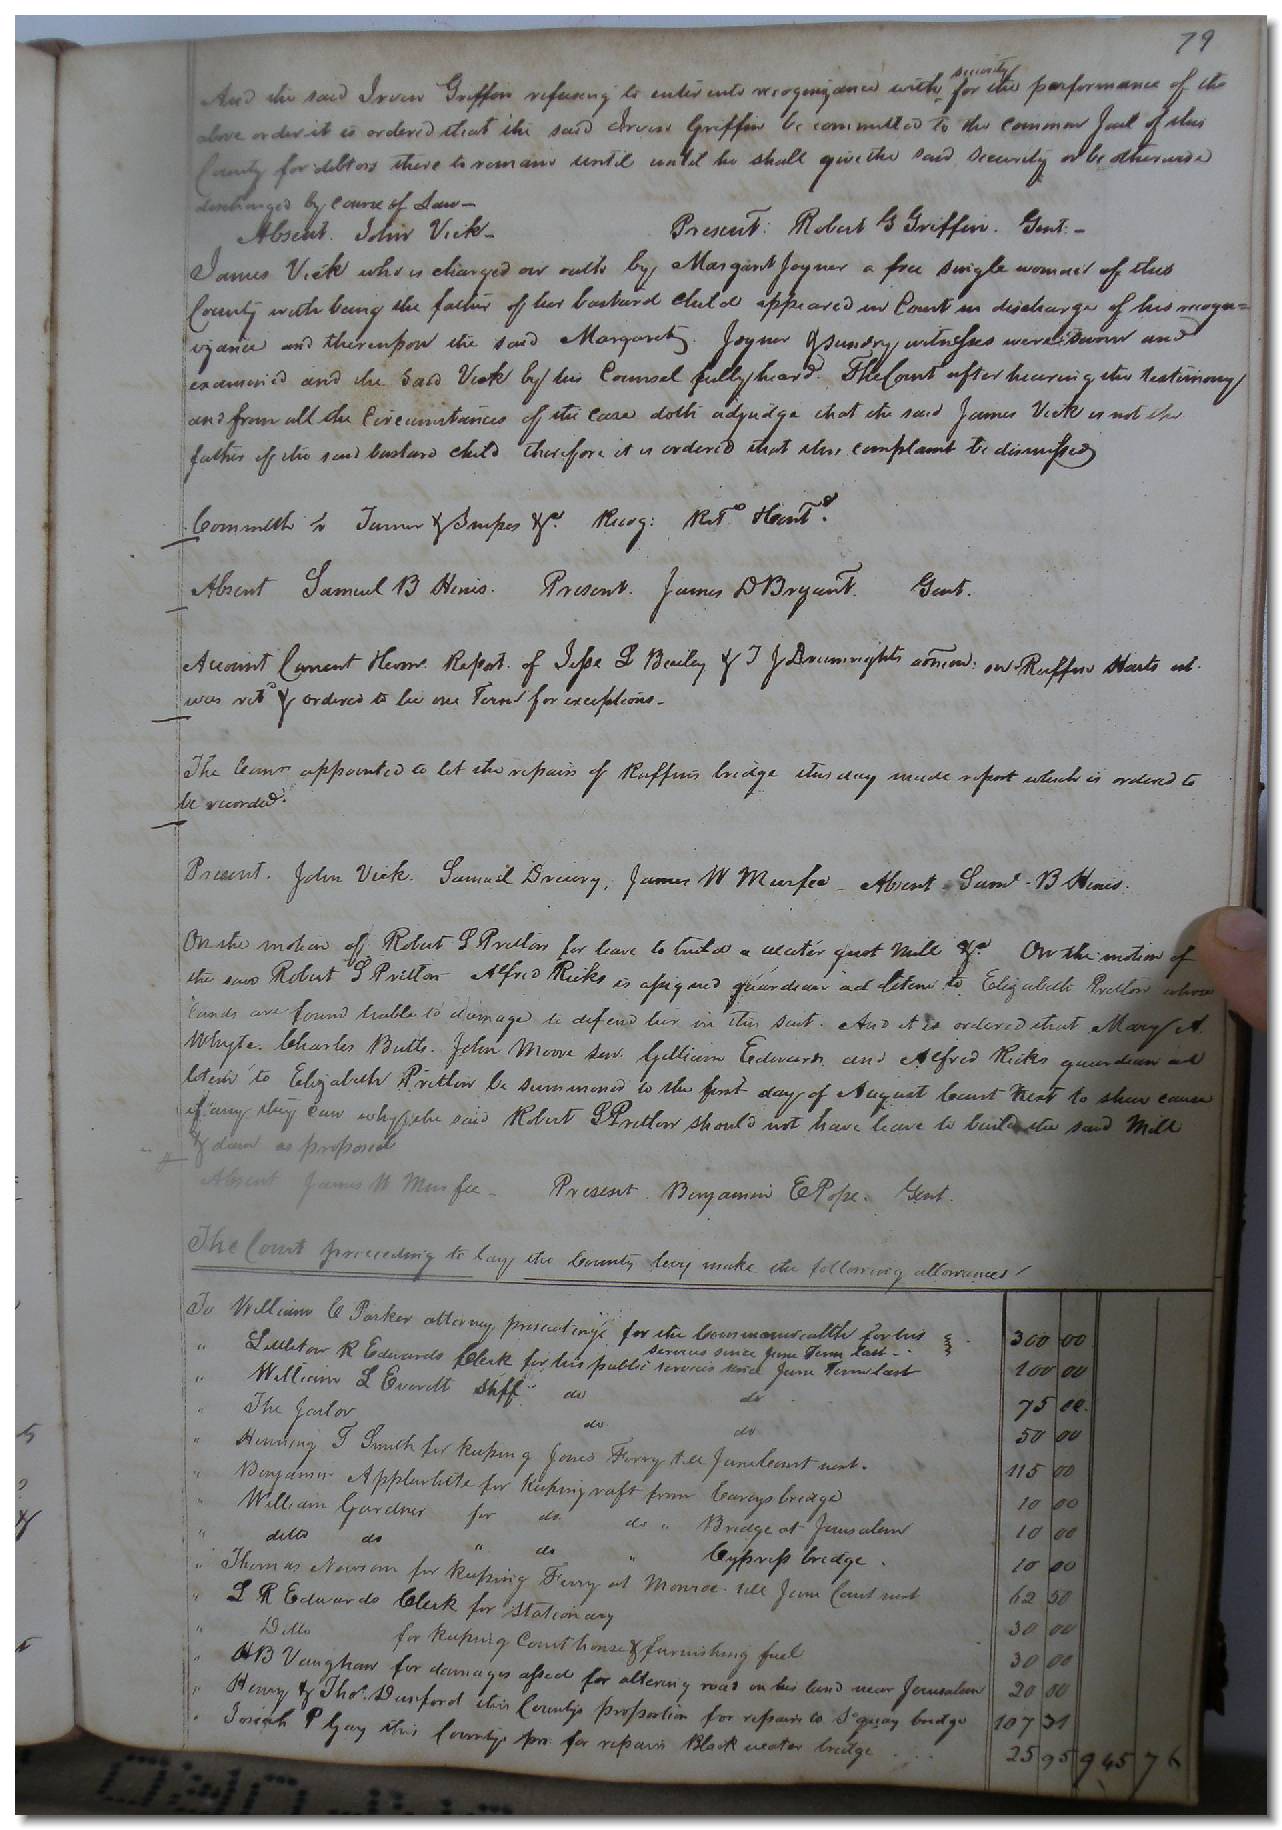 79
And the said Irvin Griffin refusing to enter into recognizance with security for the performance of the
above order it is ordered that the said Irvin Griffin be committed to the common Jail of this
County for debtors there to remain until until he shall give the said security or be otherwise
discharged by course of Law—
Absent. John Vick— Present: Robert G Griffin. Gent:—
James Vick who is charged on oath by Margaret Joyner a free single woman of this
County with being the father of her bastard child appeared in Court in discharge of his recogn=
izance and thereupon the said Margaret Joyner & sundry witnesses were sworn and
examined and the said Vick by his Counsel fully heard. The Court after hearing the testimony
and from all the circumstances of the case doth adjudge that the said James Vick is not the
father of the said bastard child therefore it is ordered that this complaint be dismissed
Commlth v Turner & Snipes &c. Recog: Retd
Absent Samuel B Hines. Present. James D Bryant. Gent.
Account Current Report. of Jesse L Bailey & T J on Ruffin Harts
was retd & ordered to lie one Term for exceptions—
The Comr appointed to let the repairs of Ruffins bridge this day made report which is ordered to
be recorded.
Present. John Vick. Samuel Drewry, James W Murfee — Absent Saml. B Hines.
On the motion of Robert S Pretlow for leave to build a water grist Mill &c. On the motion of
the said Robert S Pretlow Alfred Ricks is assigned guardian ad litem to Elizabeth Pretlow whose
lands are found liable to damage to defend her in this suit. And it is ordered that Mary A.
Whyte. Charles Butts. John Moore Senr. Gilliam Edwards and Alfred Ricks guardian ad
litem to Elizabeth Pretlow be summoned to the first day of August Court next to shew cause
if any they can why the said Robert S Pretlow should not have leave to build the said Mill
& dam as proposed
Absent James W Murfee— Present. Benjamin E Pope. Gent.
The Court proceeding to lay the County levy make the following allowances
To William C Parker attorney prosecuting for the Commonwealth for his services since June Term last 300 00
" Littleton R Edwards Clerk for his public services since June Term last 100 00
" William L Everett Shff: do do 75 00.
" The Jailor do do 50 00
" Henning T Smith for keeping Jones Ferry till June Court next. 115 00
" Benjamin Applewhite for keeping raft from Careys bridge 10 00
" William Gardner for do do " Bridge at Jerusalem 10 00
" ditto do " do " Cypress bridge. 10 00
" Thomas Newsom for keeping Ferry at Monroe till June Court next 62 50
" L R Edwards Clerk for Stationary 30 00
" Ditto for keeping Court house & furnishing fuel 30 00
" H B Vaughan for damages assed for altering road on his land near Jerusalem 20 00
" Henry & Thos. Dunford this Countys proportion for repairs to bridge 107 31
" Joseph P Gay this Countys pro. for repairs Black water bridge 25 95 945 76